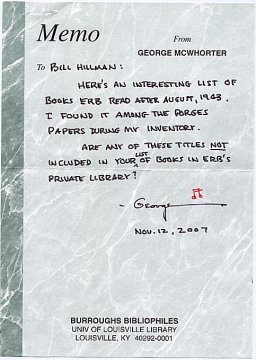 Memo
From
GEORGE MCWHORTER
To BILL HILLMAN:
HERE'S AN INTERESTING LIST OF
BOOKS ERB READ AFTER AUGUST, 1943.
I FOUND IT AMONG THE PORGES
PAPERS DURING MY INVENTORY.
ARE ANY OF THESE TITLES NOT
INCLUDED IN YOUR LIST OF BOOKS IN ERB'S
PRIVATE LIBRARY?
- George
NOV. 12, 2007
BURROUGHS BIBLIOPHILES
UNIV OF LOUISVILLE LIBRARY
LOUISVILLE, KY 40292-0001